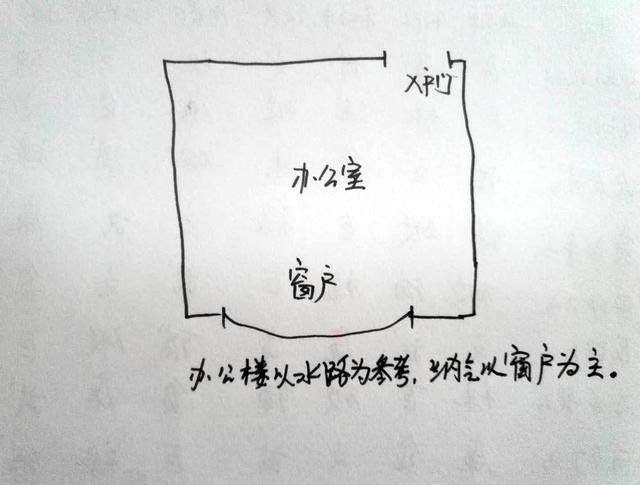 入户门
办公室
窗户
办公楼以水路为参考,纳气以窗户为主。